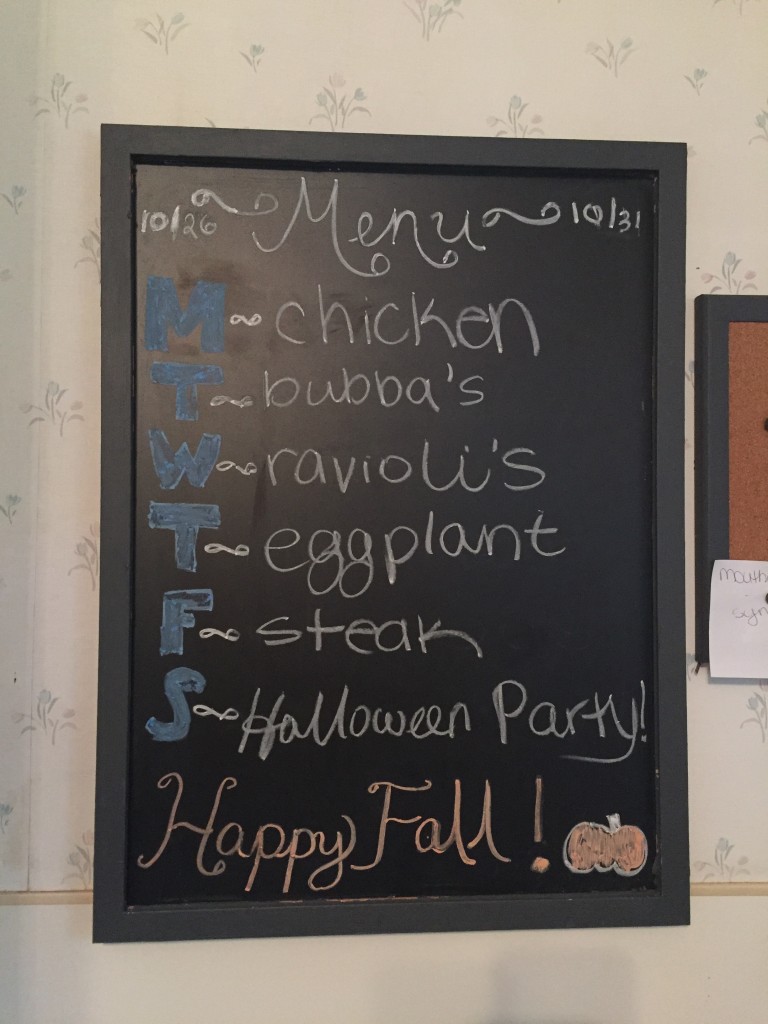 10/26 Menu 10/31
M~chicken
T~bubba's
W~ravioli's
T~eggplant
F~steak
S~Halloween Party!
Happy Fall!